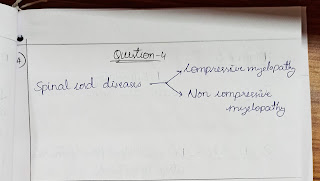 Question-4
A)
Compressive myelopathy
Spinal cord diseases
Non compressive
myelopathy